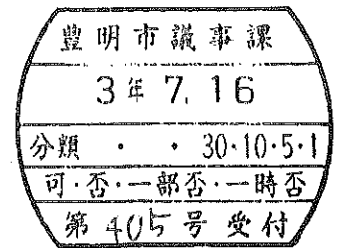 豊明市議事課
3年7.16
分類 ・ ・ 30・10・5・1
可・否・一部否・一時否
第405号受付